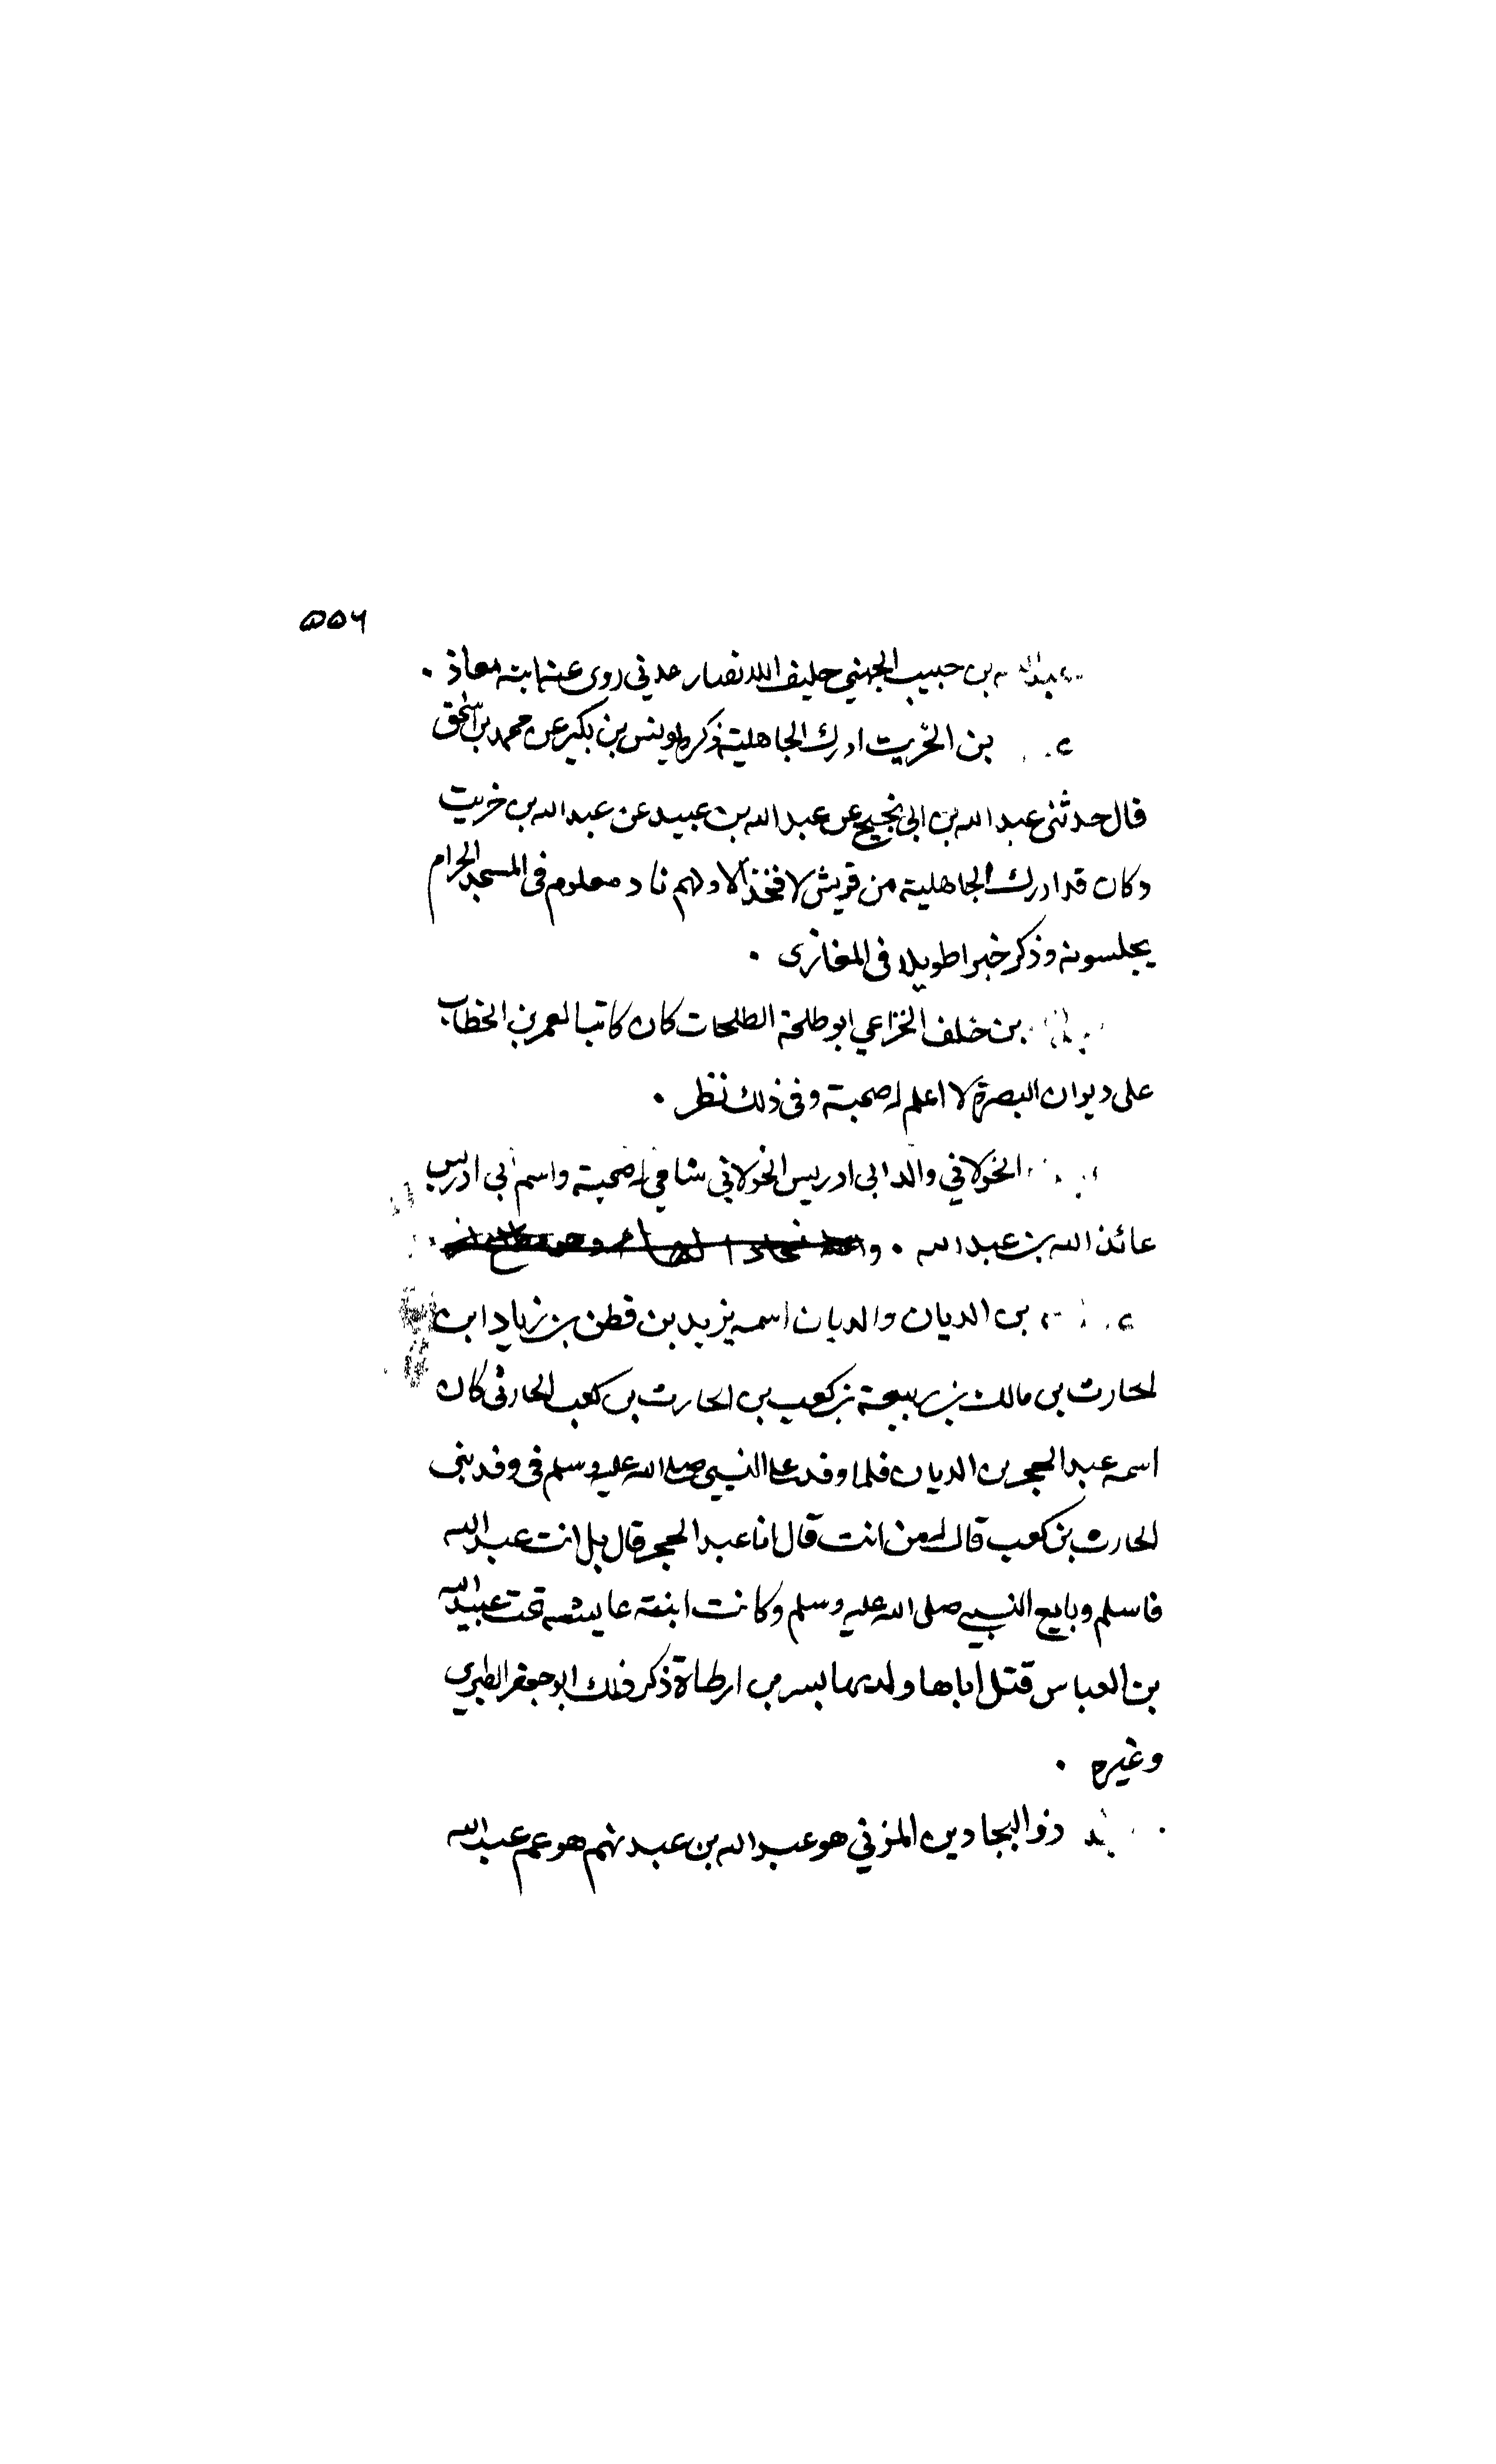 ٥٥٦
عبدالله بن حبيب الجهني حليف للانصار مدني روى عنه ابنه معاذ .
بن الخريت ادرك الجاهلية ذكره يونس بن بكير عن محمد بن اسحق
قال حدثني عبد الله بن ابي نجيح عن عبد الله بن عبيد عن عبد الله بن خريت
وكان قد ادرك الجاهلية من قريش لا فخذ الا ولهم ناد معلوم في المسجد الحرام
يجلسونه وذكر خبرا طويلا في المغازى .
بن خلف الخزاعي ابو طلحة الطلحات كان كاتبا لعمر بن الخطاب
على ديوان البصرة لا اعلم له صحبة وفي ذلك نظر .
الخولاني والد ابى ادريس الخولاني شامي له صحبة واسم أبي ادريس
عائذ الله بن عبد الله .
بن الديان والديان اسمه يزيد بن قطن بن زياد ابن
الحارث بن مالك بن ربيعة بن كعب بن الحارث بن كعب الحارثى كان
اسمه عبد الحجر بن الديان فلما وفد على النبي صلى الله عليه وسلم في وفد بنى
الحارث بن كعب قال له من انت قال انا عبد الحجر قال بل انت عبد الله
فاسلم وبايع النبي صلى الله عليه وسلم وكانت ابنته عايشه تحت عبيد الله
بن العباس قتل اباها وولديها بسر بن ارطاة ذكر ذلك ابو جعفر الطبري
وغيره .
ذو البجادين المزني هو عبد الله بن عبد نهم هو عم عبد الله